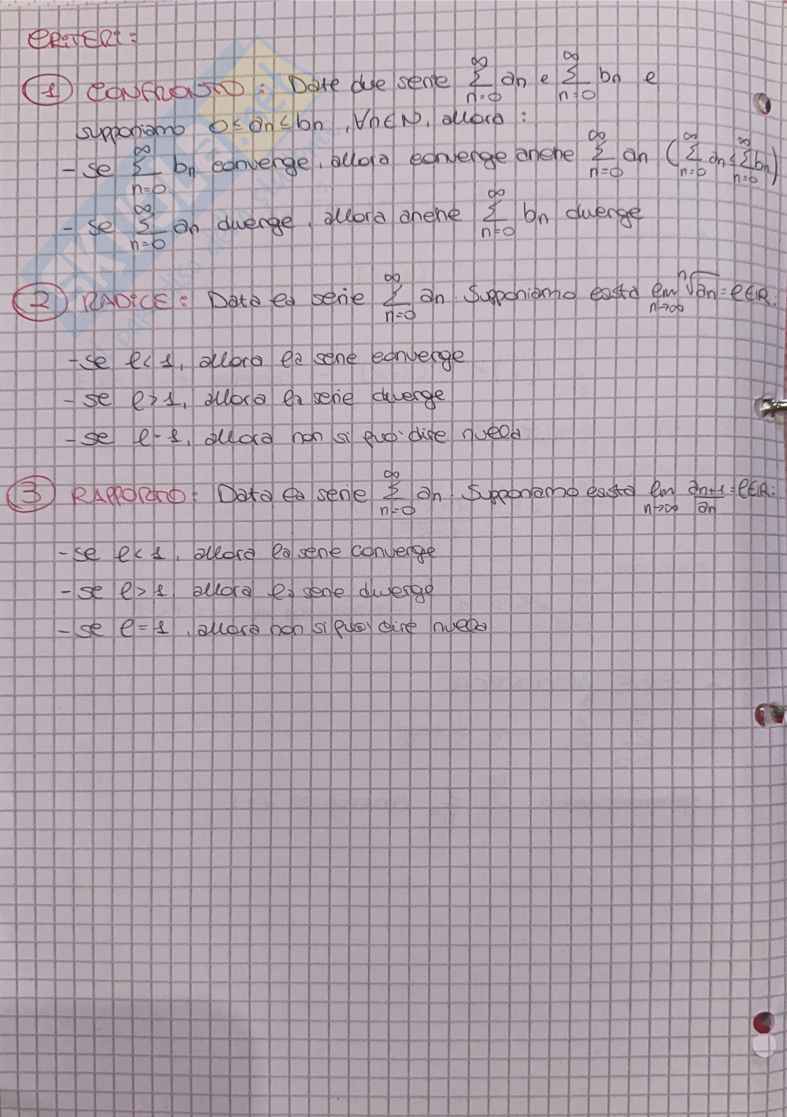 CRITERI:
① CONFRONTO: Date due serie ∞Σn=0 an e ∞Σn=0 bn e
supponiamo 0≤an≤bn, ∀n∈N, allora:
- se ∞Σn=0 bn converge, allora converge anche ∞Σn=0 an (∞Σn=0 an ≤ ∞Σn=0 bn)
- se ∞Σn=0 an diverge, allora anche ∞Σn=0 bn diverge
② RADICE: Data la serie ∞Σn=0 an. Supponiamo esista lim n→∞ ⁿ√an = l∈R:
- se l<1, allora la serie converge
- se l>1, allora la serie diverge
- se l=1, allora non si può dire nulla
③ RAPPORTO: Data la serie ∞Σn=0 an. Supponiamo esista lim n→∞ an+1/an = l∈R:
- se l<1, allora la serie converge
- se l>1 allora la serie diverge
- se l=1, allora non si può dire nulla